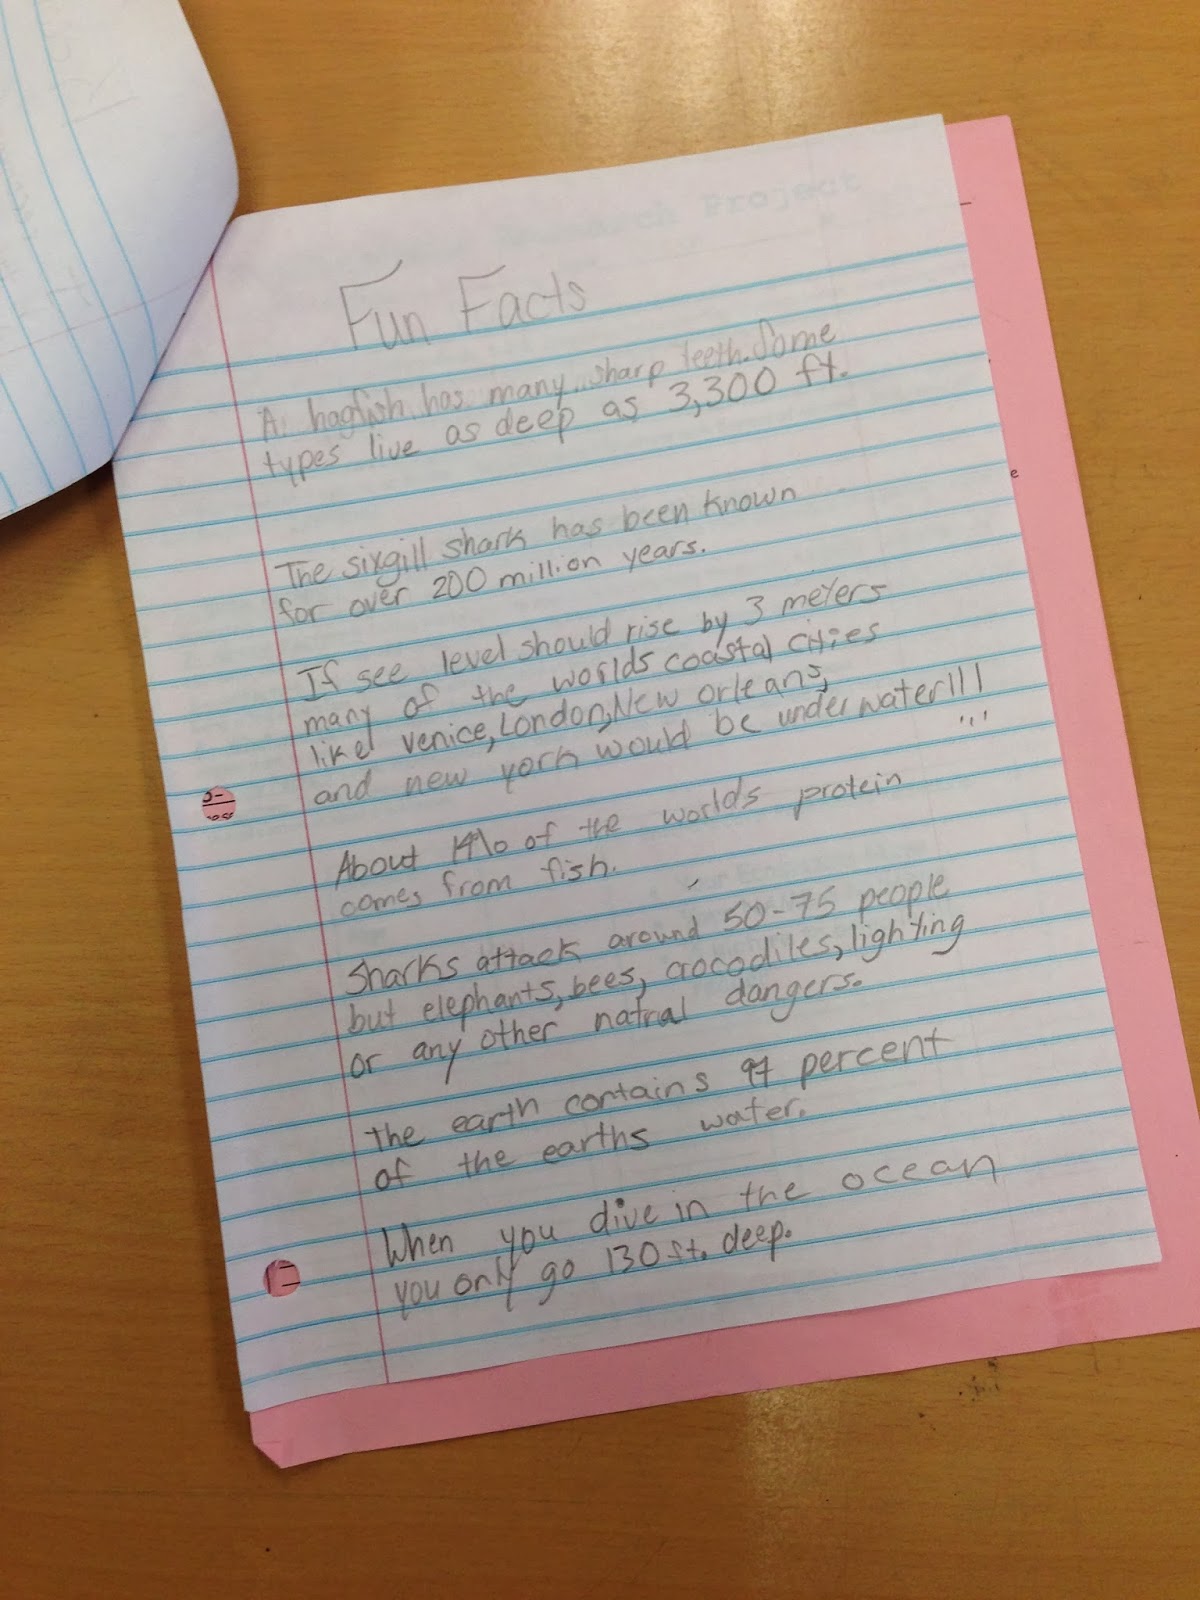 Fun Facts
A hagfish has many sharp teeth. Some
types live as deep as 3,300 ft.
The sixgill shark has been known
for over 200 million years.
If see level should rise by 3 meters
many of the worlds coastal cities
like venice, London, New orleans,
and new york would be underwater!!!
About 14% of the worlds protein
comes from fish.
Sharks attack around 50-75 people
but elephants, bees, crocodiles, lighting
or any other natral dangers.
the earth contains 97 percent
of the earths water.
When you dive in the ocean
you only go 130 ft. deep.